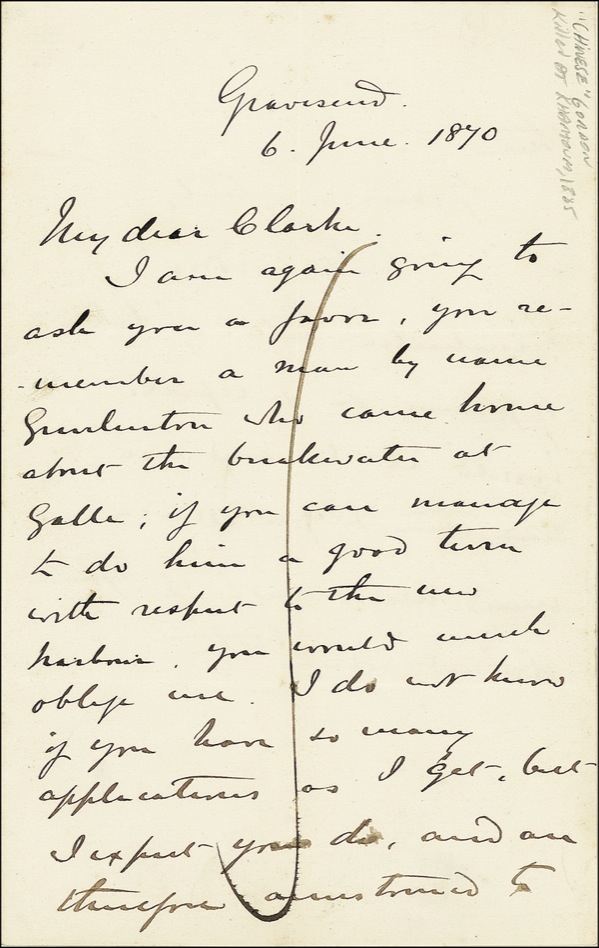 "CHINESE" GORDON
Killed AT KHARTOUM, 1885
Gravesend.
6. June. 1870
My dear Clarke.
I am again going to
ask you a favor, you re-
-member a man by name
who came home
about the breakwater at
Galle; if you can manage
to do him a good turn
with respect to the new
harbour, you would much
oblige me. I do not know
if you have so many
applications as I get, but
I expect you do, and are
therefore accustomed to